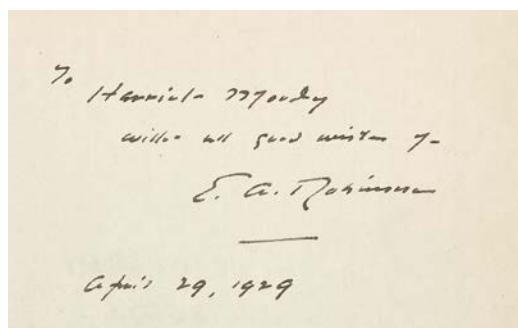 To
Harriet Moody
with all good wishes of
E. A. Robinson
April 29, 1929